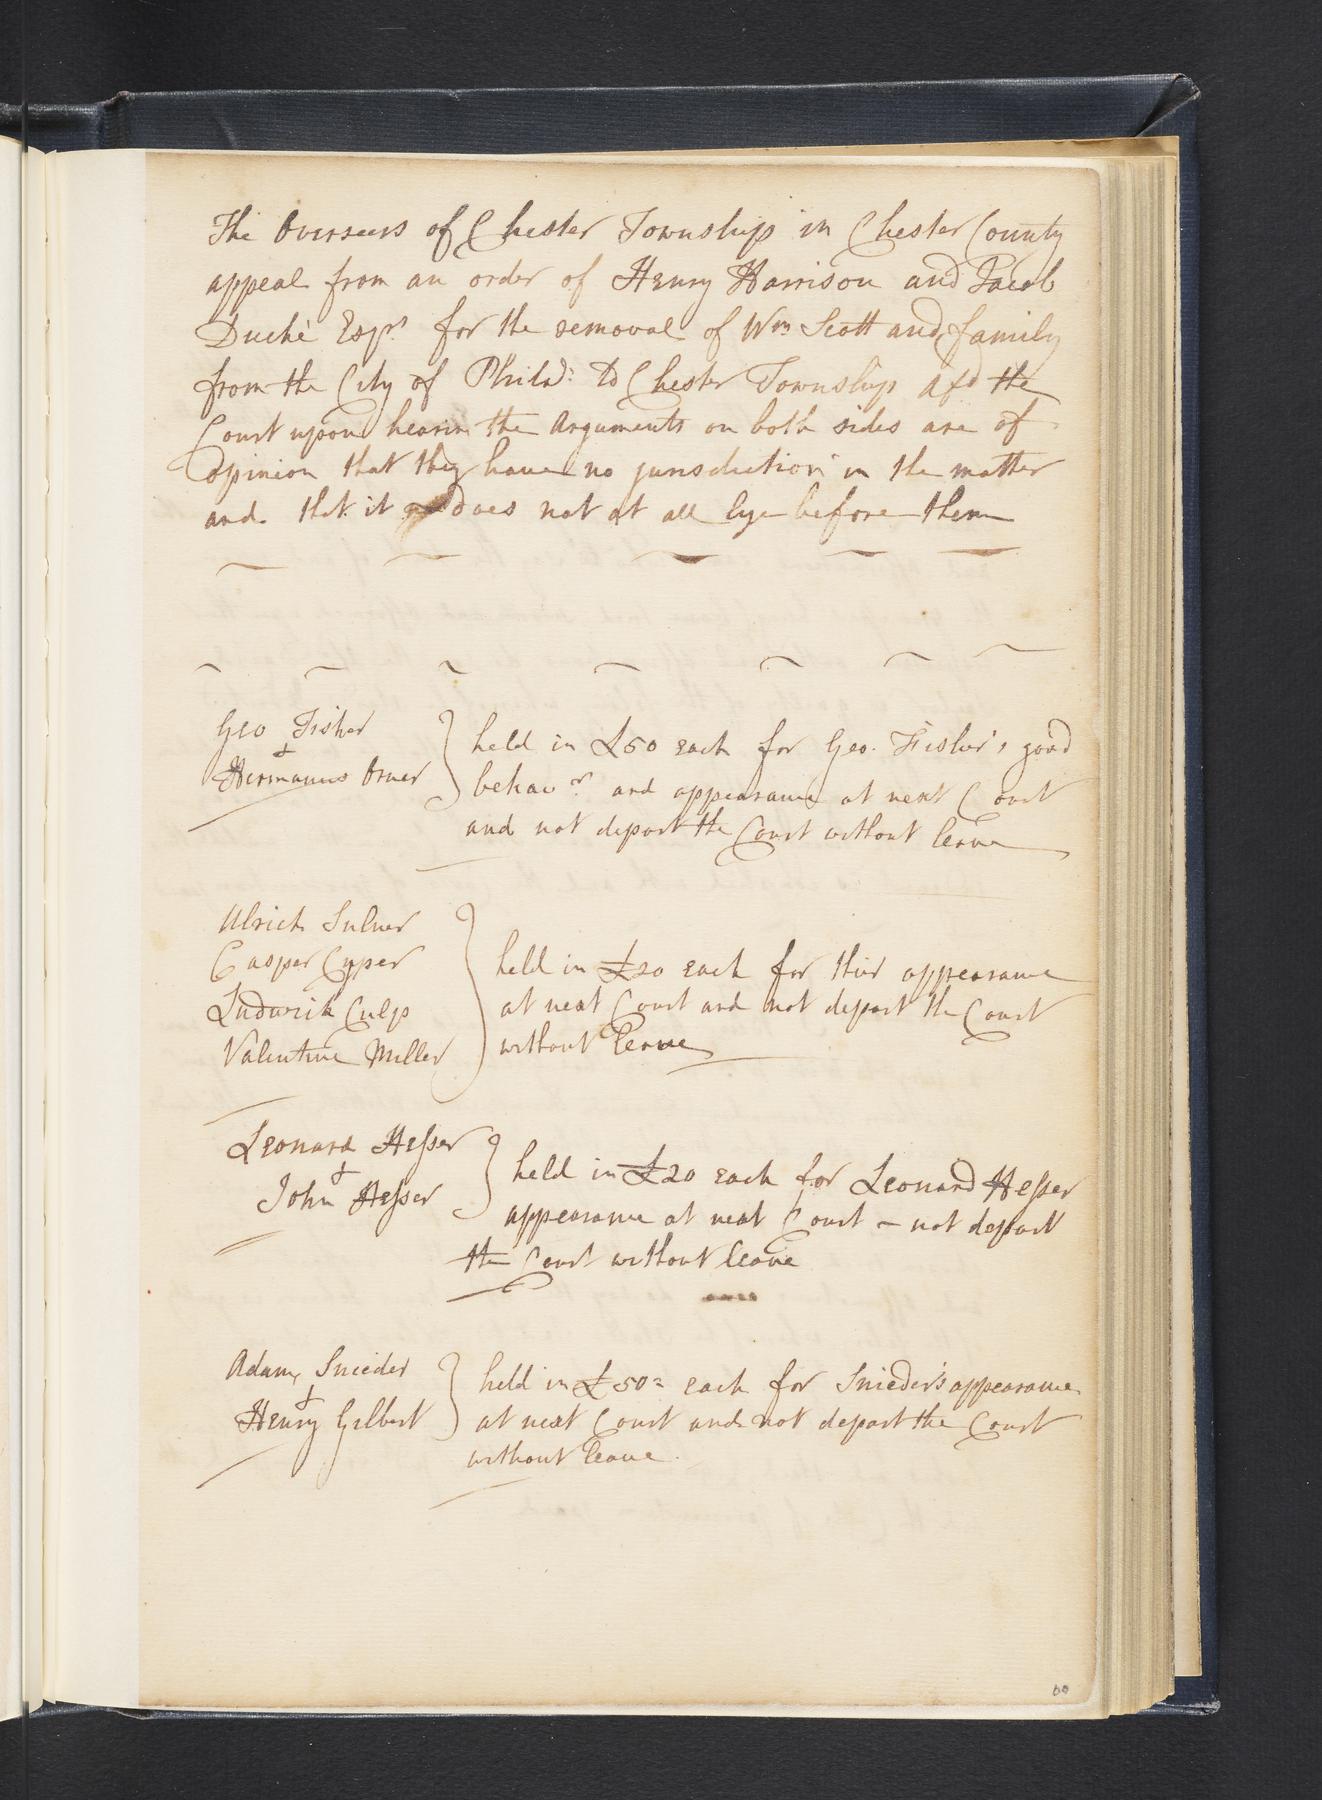 The Overseers of Chester Township in Chester County
appeal from an order of Henry Harrison and Jacob
Duché Esqrs for the removal of Wm Scott and family
from the City of Philada: to Chester Township afd the
Court upon hearing the Arguments on both sides are of
Opinion that they have no jurisdiction in the matter
and that it does not at all lye before them
Geo Fisher
&
Hermanus Orner
held in £50 each for Geo. Fisher's good
behavr and appearance at next Court
and not depart the Court without leave
Ulrich Sulner
Casper Cyper
Ludwick Culp
Valentine Miller
held in £20 each for their appearance
at next Court and not depart the Court
without leave
Leonard Hesser
&
John Hesser
held in £20 each for Leonard Hesser
appearance at next Court - not depart
the Court without leave
Adam Snieder
&
Henry Gilbert
held in £50= each for Snieder's appearance
at next Court and not depart the Court
without leave.
60